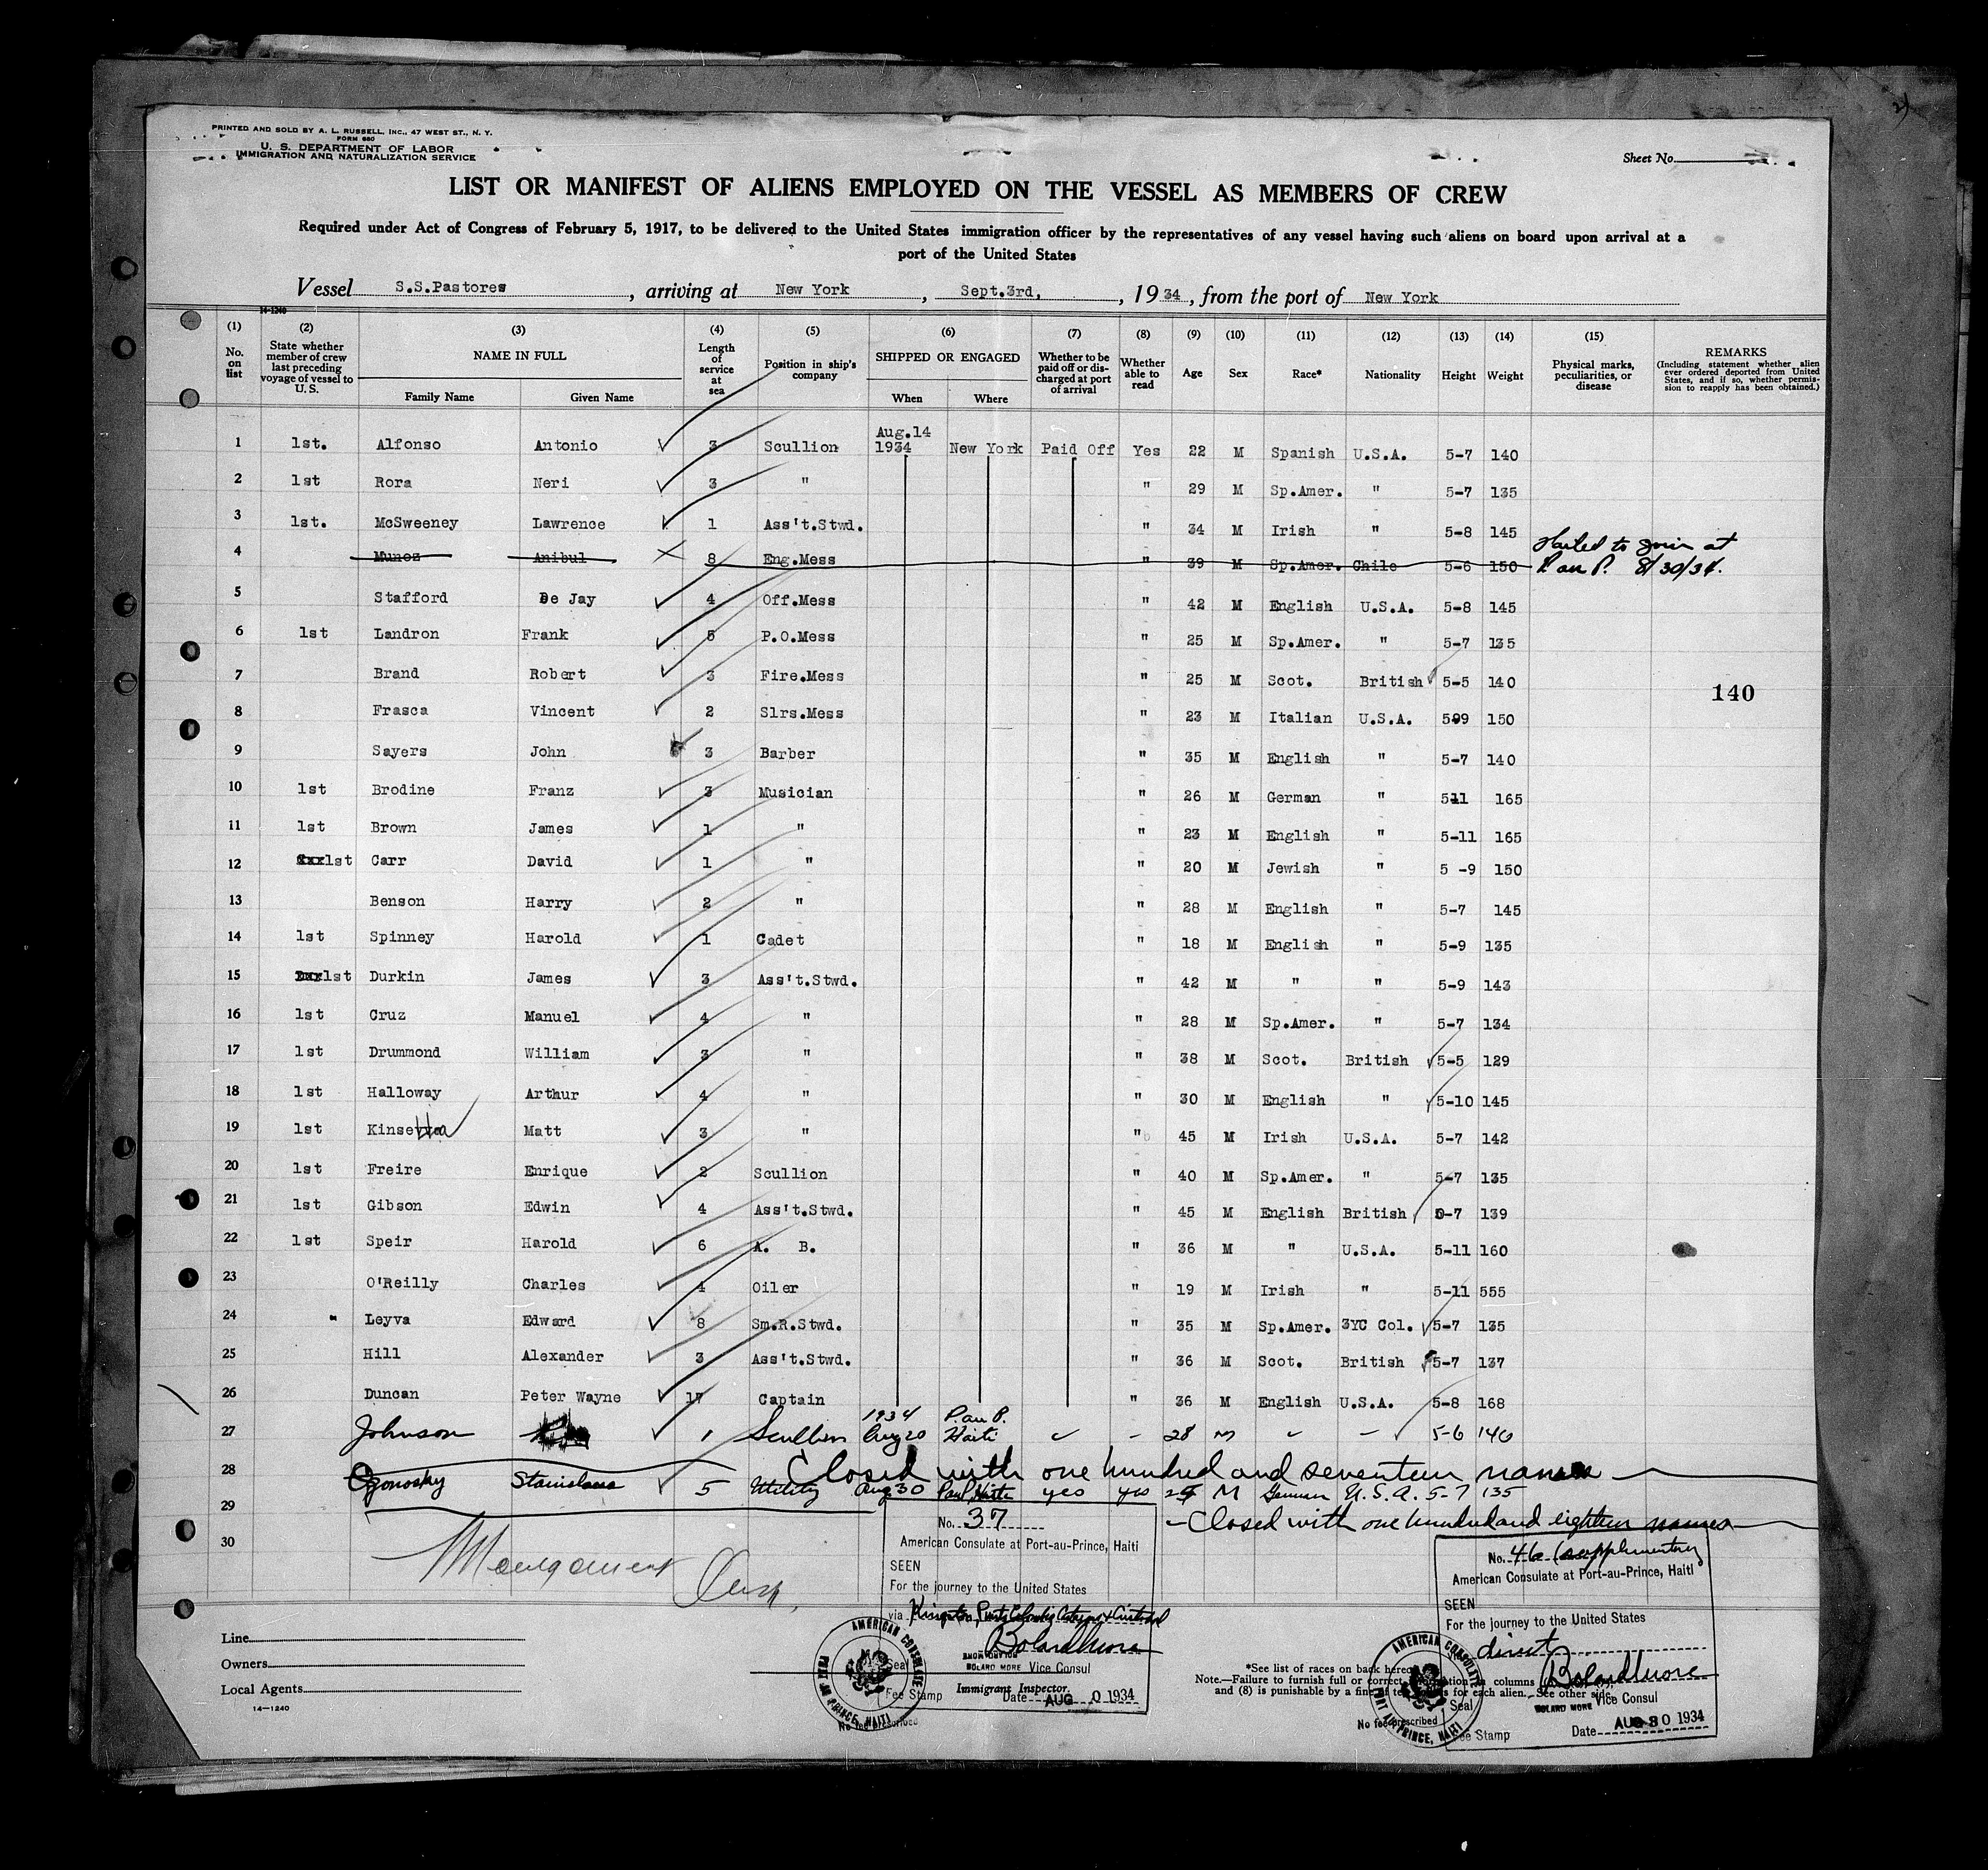 PRINTED AND SOLD BY A. L. RUSSELL, INC., 47 WEST ST., N. Y.
FORM 680
U. S. DEPARTMENT OF LABOR
IMMIGRATION AND NATURALIZATION SERVICE
Sheet No.
LIST OR MANIFEST OF ALIENS EMPLOYED ON THE VESSEL AS MEMBERS OF CREW
Required under Act of Congress of February 5, 1917, to be delivered to the United States immigration officer by the representatives of any vessel having such aliens on board upon arrival at a
port of the United States
Vessel S.S.Pastores, arriving at New York, Sept.3rd, , 1934, from the port of New York
14-1240
(1) (2) (3) (4) (5) (6) (7) (8) (9) (10) (11) (12) (13) (14) (15)
No. on list
State whether member of crew last preceding voyage of vessel to U. S.
NAME IN FULL
Family Name Given Name
Length of service at sea
Position in ship's company
SHIPPED OR ENGAGED
When Where
Whether to be paid off or discharged at port of arrival
Whether able to read
Age
Sex
Race*
Nationality
Height
Weight
Physical marks, peculiarities, or disease
REMARKS
(Including statement whether alien ever ordered deported from United States, and if so, whether permission to reapply has been obtained.)
1 1st. Alfonso Antonio 3 Scullion Aug.14 1934 New York Paid Off Yes 22 M Spanish U.S.A. 5-7 140
2 1st Rora Neri 3 " " 29 M Sp.Amer. " 5-7 135
3 1st. McSweeney Lawrence 1 Ass't.Stwd. " 34 M Irish " 5-8 145
4 Munoz Anibul 8 Eng.Mess " 39 M Sp.Amer. Chile 5-6 150 Failed to join at P. au P. 8/30/34.
5 Stafford De Jay 4 Off.Mess " 42 M English U.S.A. 5-8 145
6 1st Landron Frank 5 P.O.Mess " 25 M Sp.Amer. " 5-7 135
7 Brand Robert 3 Fire.Mess " 25 M Scot. British 5-5 140
140
8 Frasca Vincent 2 Slrs.Mess " 23 M Italian U.S.A. 599 150
9 Sayers John 3 Barber " 35 M English " 5-7 140
10 1st Brodine Franz 3 Musician " 26 M German " 511 165
11 1st Brown James 1 " " 23 M English " 5-11 165
12 1st Carr David 1 " " 20 M Jewish " 5 -9 150
13 Benson Harry 2 " " 28 M English " 5-7 145
14 1st Spinney Harold 1 Cadet " 18 M English " 5-9 135
15 1st Durkin James 3 Ass't.Stwd. " 42 M " " 5-9 143
16 1st Cruz Manuel 4 " " 28 M Sp.Amer. " 5-7 134
17 1st Drummond William 3 " " 38 M Scot. British 5-5 129
18 1st Halloway Arthur 4 " " 30 M English " 5-10 145
19 1st Kinsella Matt 3 " " 45 M Irish U.S.A. 5-7 142
20 1st Freire Enrique 2 Scullion " 40 M Sp.Amer. " 5-7 135
21 1st Gibson Edwin 4 Ass't.Stwd. " 45 M English British 5-7 139
22 1st Speir Harold 6 A. B. " 36 M " U.S.A. 5-11 160
23 O'Reilly Charles 4 Oiler " 19 M Irish " 5-11 555
24 Leyva Edward 8 Sm.R.Stwd. " 35 M Sp.Amer. 3YC Col. 5-7 135
25 Hill Alexander 3 Ass't.Stwd. " 36 M Scot. British 5-7 137
26 Duncan Peter Wayne 17 Captain " 36 M English U.S.A. 5-8 168
27 Johnson 1 Scullion 1934 Aug 20 P. au P. Haiti 28 M 5-6 146
28 Closed with one hundred and seventeen names
Ogonosky Stanislaus 5 Utility Aug 30 PauP, Haiti yes yes 25 M German U.S.A. 5-7 135
29
Closed with one hundred and eighteen names
30
No. 37
American Consulate at Port-au-Prince, Haiti
SEEN
For the journey to the United States
via Kingston,
Boland More
BOLARD MORE Vice Consul
Seal
Immigrant Inspector.
Fee Stamp Date AUG 0 1934
No fee prescribed
AMERICAN CONSULATE
PORT AU PRINCE, HAITI
No. 46 (supplimentary
American Consulate at Port-au-Prince, Haiti
SEEN
For the journey to the United States
direct
Boland More
BOLARD MORE Vice Consul
Seal
Fee Stamp Date AUG 30 1934
No fee prescribed
AMERICAN CONSULATE
PORT AU PRINCE, HAITI
Line
Owners
Local Agents
14—1240
*See list of races on back hereof
Note.—Failure to furnish full or correct information in columns
and (8) is punishable by a fine of ten dollars for each alien. See other side.